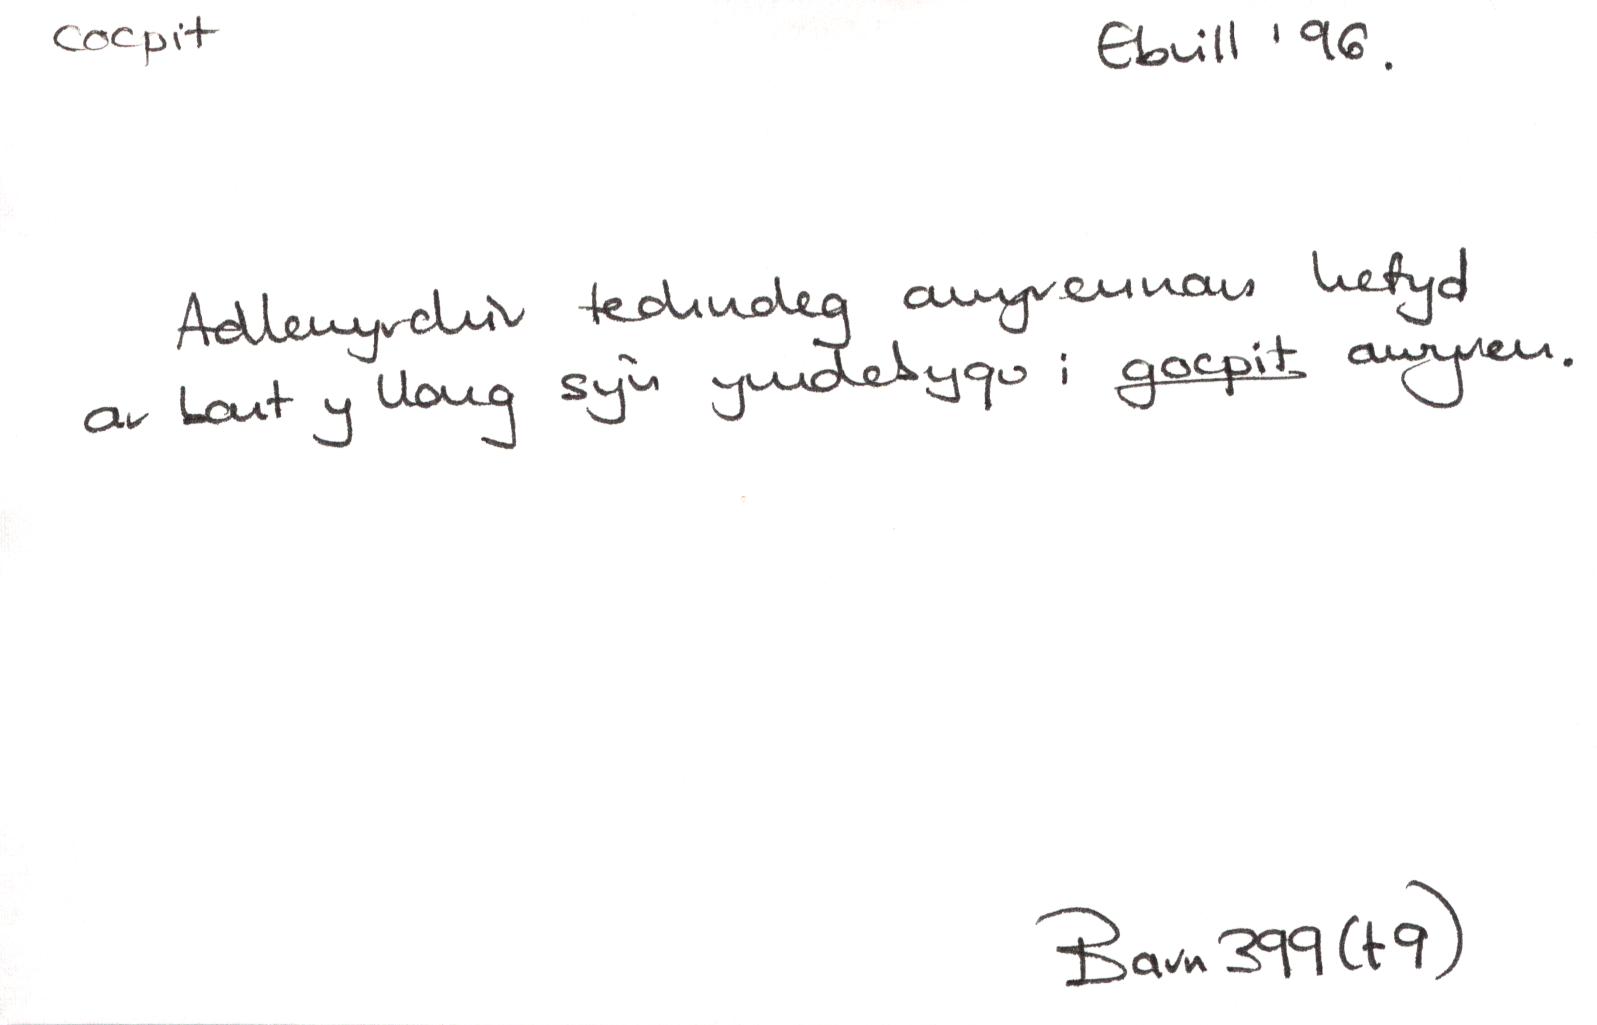 cocpit
Ebrill '96.
Adlewyrchir technoleg awyrennau hefyd
ar bont y llong sy'n ymdebygu i gocpit awyren.
Barn 399 (t9)